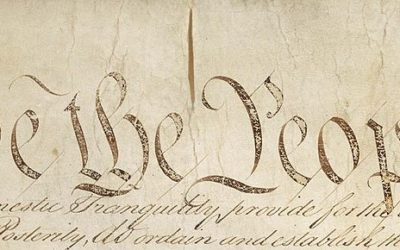 e the Peop
mestic Tranquility, provide for the
Posterity, do ordain and establish th